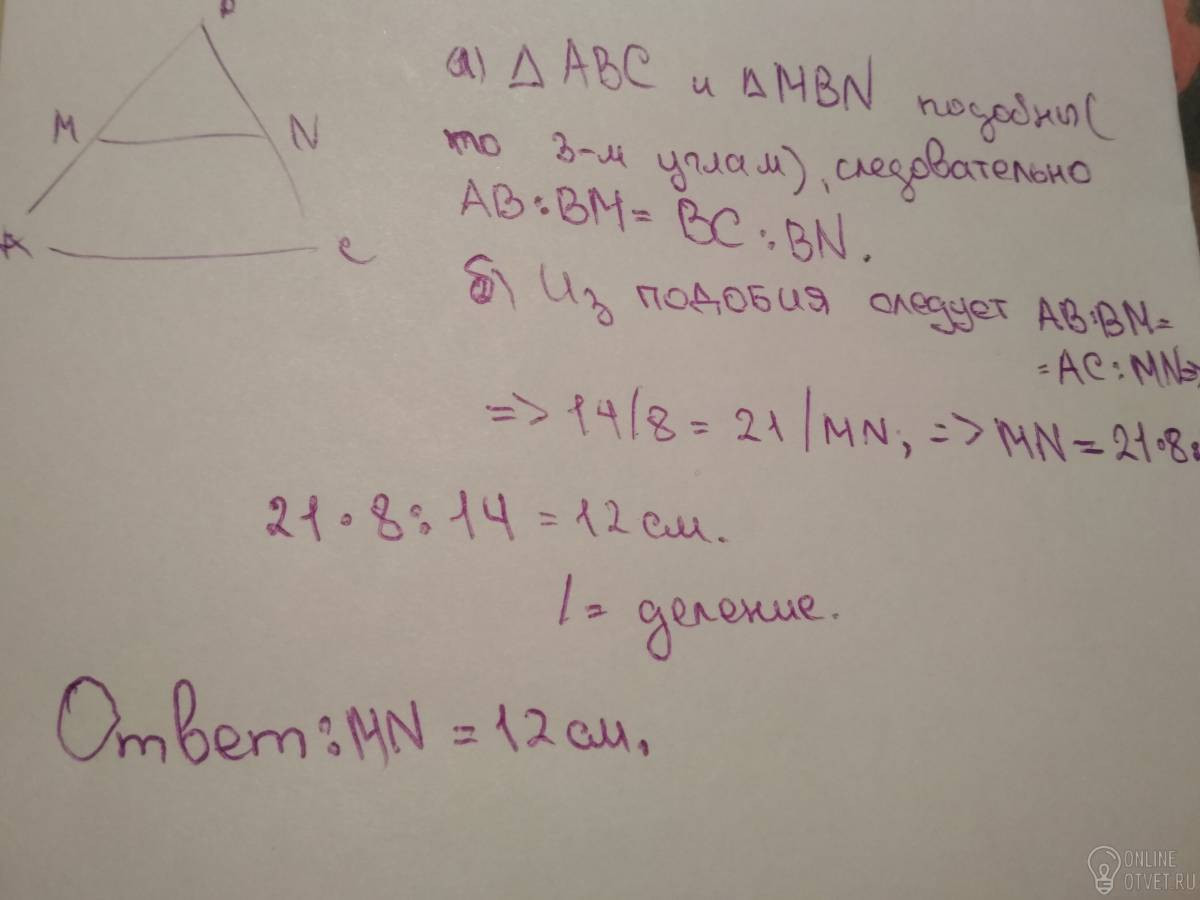 M
N
A
C
а) Δ ABC и ΔMBN подобны(
по 3-м углам), следовательно
AB:BM= BC:BN.
б) Из подобия следует AB:BM=
=AC:MN=>
=> 14/8 = 21/MN, => MN=21·8:
21·8:14 = 12 см.
/= деление.
Ответ: MN = 12 см.
ONLINE
OTVET.RU